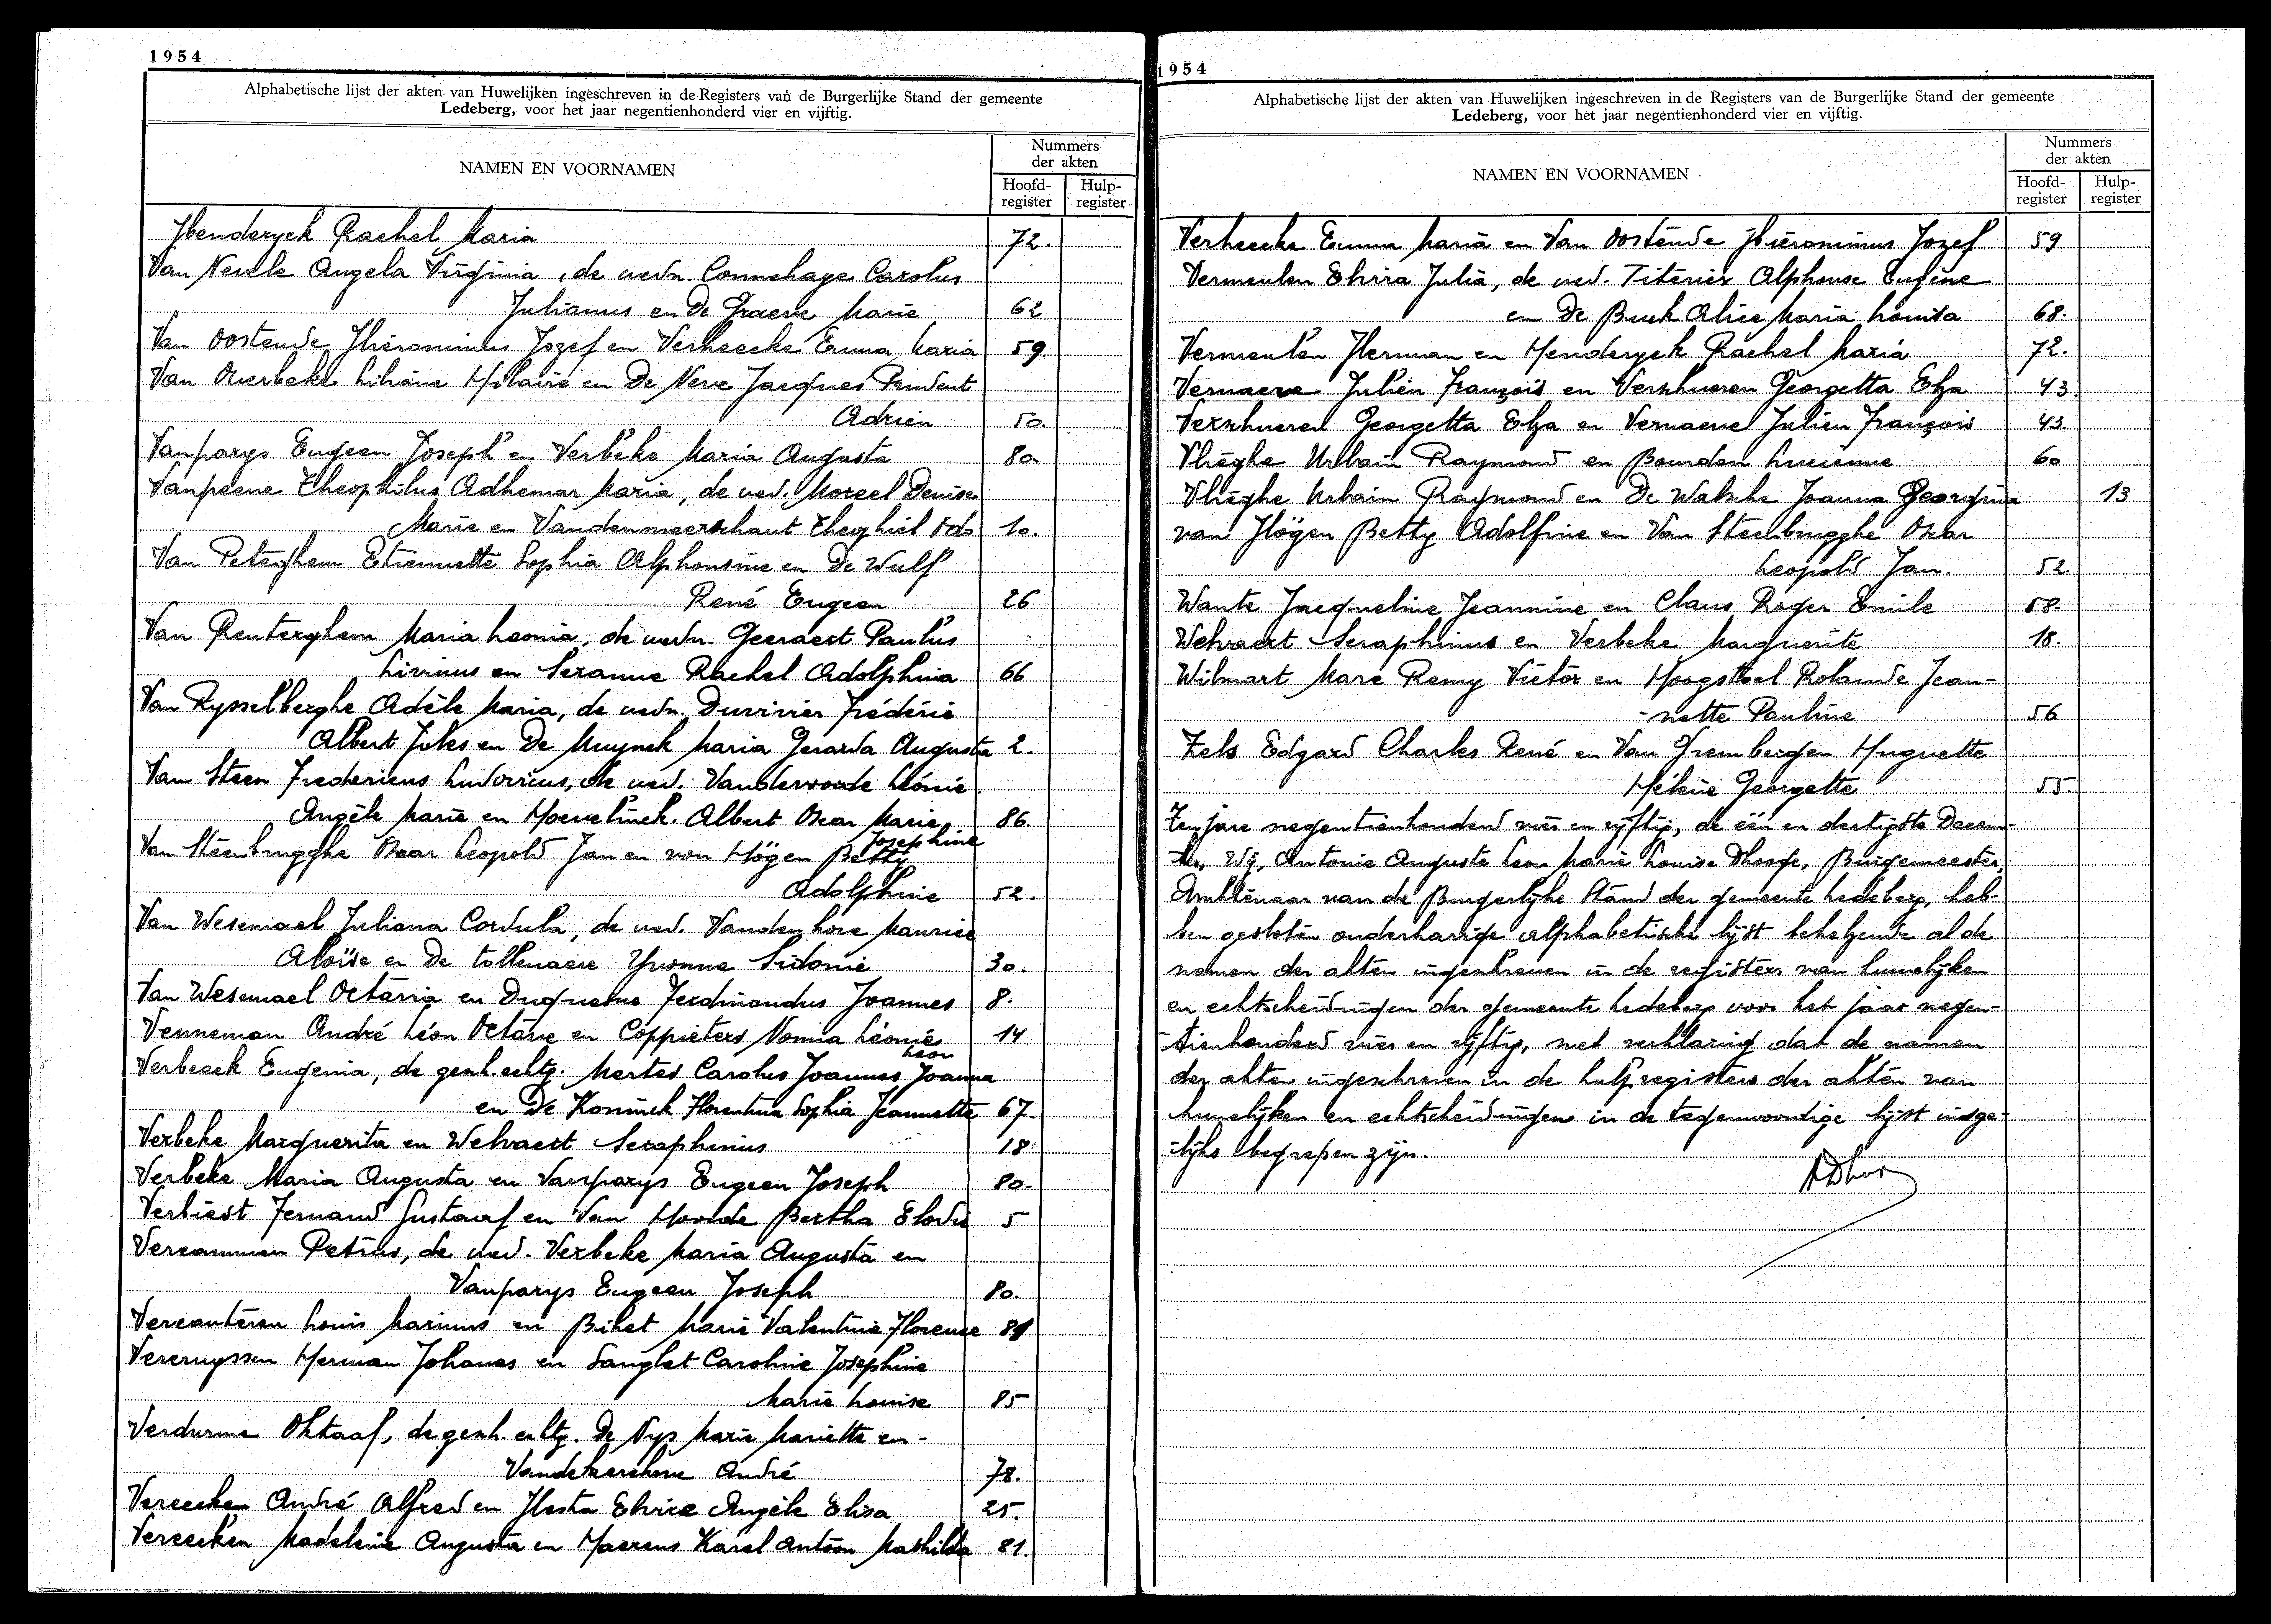 1954
Alphabetische lijst der akten van Huwelijken ingeschreven in de Registers van de Burgerlijke Stand der gemeente
Ledeberg, voor het jaar negentienhonderd vier en vijftig.
NAMEN EN VOORNAMEN
Nummers
der akten
Hoofd-
register
Hulp-
register
Henderyck Rachel Maria 72.
Van Nevele Angela Virginia, de wedn. Connehaye Carolus
Julianus en De Graeve Marie 62
Van Oostende Hiëronimus Jozef en Verheecke Emma Maria 59
Van Overbeke Liliane Hilaire en De Neve Jacques Prudent
Adrien 50.
Vanparys Eugeen Joseph en Verbeke Maria Augusta 80
Vanpeene Theophilus Adhemar Maria, de wed. Moreel Denise
Marie en Vandenmeerschaut Theophiel Odo 10.
Van Peteghem Etiennette Sophia Alphonsine en De Wulf
René Eugeen 26
Van Renterghem Maria Leonia, de wedn. Geeraert Paulus
Livinus en Seranne Rachel Adolphina 66
Van Rysselberghe Adèle Maria, de wedn. Duvivier Frédéric
Albert Jules en De Muynck Maria Gerarda Augusta 2.
Van Steen Fredericus Ludovicus, de wed. Vandervoorde Léonie
Angèle Marie en Hoevelinck Albert Oscar Marie 86
Josephine
Van Steenbrugghe Oscar Leopold Jan en von Högen Betty
Adolphine 52.
Van Wesemael Juliana Cordula, de wed. Vandenhove Maurice
Aloïse en De Tollenaere Yvonne Sidonie 30.
Van Wesemael Octavia en Duquesne Ferdinandus Joannes 8.
Venneman André Léon Octave en Coppieters Nomia Léonie 14
Leon
Verbeeck Eugenia, de gesch. echtg. Mertes Carolus Joannes Joanna
en De Koninck Florentina Sophia Jeannette 67
Verbeke Marguerita en Welvaert Seraphinus 18
Verbeke Maria Augusta en Vanparys Eugeen Joseph 80.
Verbiest Fernand Gustaaf en Van Hoolde Bertha Elodie 5
Vercammen Petrus, de wed. Verbeke Maria Augusta en
Vanparys Eugeen Joseph 80.
Vercauteren Louis Marinus en Bihet Marie Valentine Florence 81
Vercruyssen Herman Johanes en Sanglet Caroline Josephine
Marie Louise 85
Verdurme Oktaaf, de gesch. echtg. De Nys Marie Mariette en -
Vandekerckhove André 78.
Vereecken André Alfred en Hesta Elvire Angèle Elisa 25.
Vereecken Madeleine Augusta en Haerens Karel Antoon Mathilda 81.
1954
Alphabetische lijst der akten van Huwelijken ingeschreven in de Registers van de Burgerlijke Stand der gemeente
Ledeberg, voor het jaar negentienhonderd vier en vijftig.
NAMEN EN VOORNAMEN
Nummers
der akten
Hoofd-
register
Hulp-
register
Verheecke Emma Maria en Van Oostende Hiëronimus Jozef 59
Vermeulen Elvira Julia, de wed. Titeniex Alphonse Eugène
en De Buck Alice Maria Louisa 68.
Vermeulen Herman en Henderyck Rachel Maria 72.
Vernaeve Julien François en Verschueren Georgetta Elza 43.
Verschueren Georgetta Elza en Vernaeve Julien François 43
Vlieghe Urbain Raymond en Bourdon Lucienne 60
Vlieghe Urbain Raymond en De Walsche Joanna Georgina 13
von Högen Betty Adolfine en Van Steenbrugghe Oscar
Leopold Jan. 52.
Wante Jacqueline Jeannine en Claus Roger Emile 58.
Welvaert Seraphinus en Verbeke Marguerite 18.
Wilmart Marc Remy Victor en Hoogstoel Rolande Jean-
-nette Pauline 56
Zels Edgard Charles René en Van Grembergen Huguette
Hélène Georgette 55
Ten jare negentienhonderd vier en vijftig, de één en dertigste Decem-
ber, Wij, Antonie Auguste Leon Marie Louise Dhooge, Burgemeester,
Ambtenaar van de Burgerlijke Stand der gemeente Ledeberg, heb-
ben gesloten onderhavige alphabetische lijst behelzende al de
namen der akten ingeschreven in de registers van huwelijken
en echtscheidingen der gemeente Ledeberg voor het jaar negen-
-tienhonderd vier en vijftig, met verklaring dat de namen
der akten ingeschreven in de hulpregisters der akten van
huwelijken en echtscheidingen in de tegenwoordige lijst insge-
-lijks begrepen zijn.